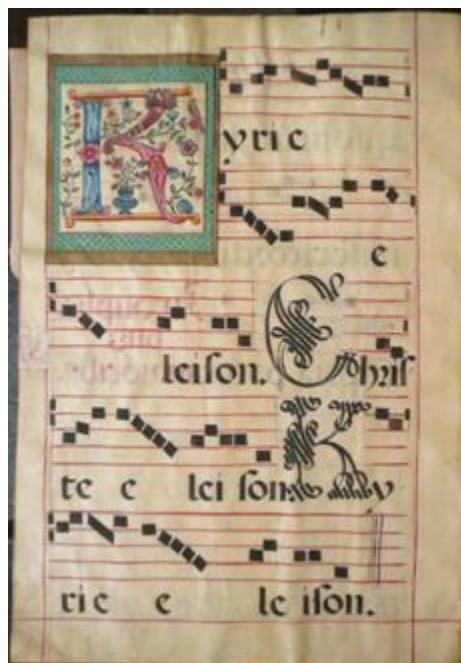 Kyrie
e
leison. Chris
te e lei son. Ky
rie e le ison.